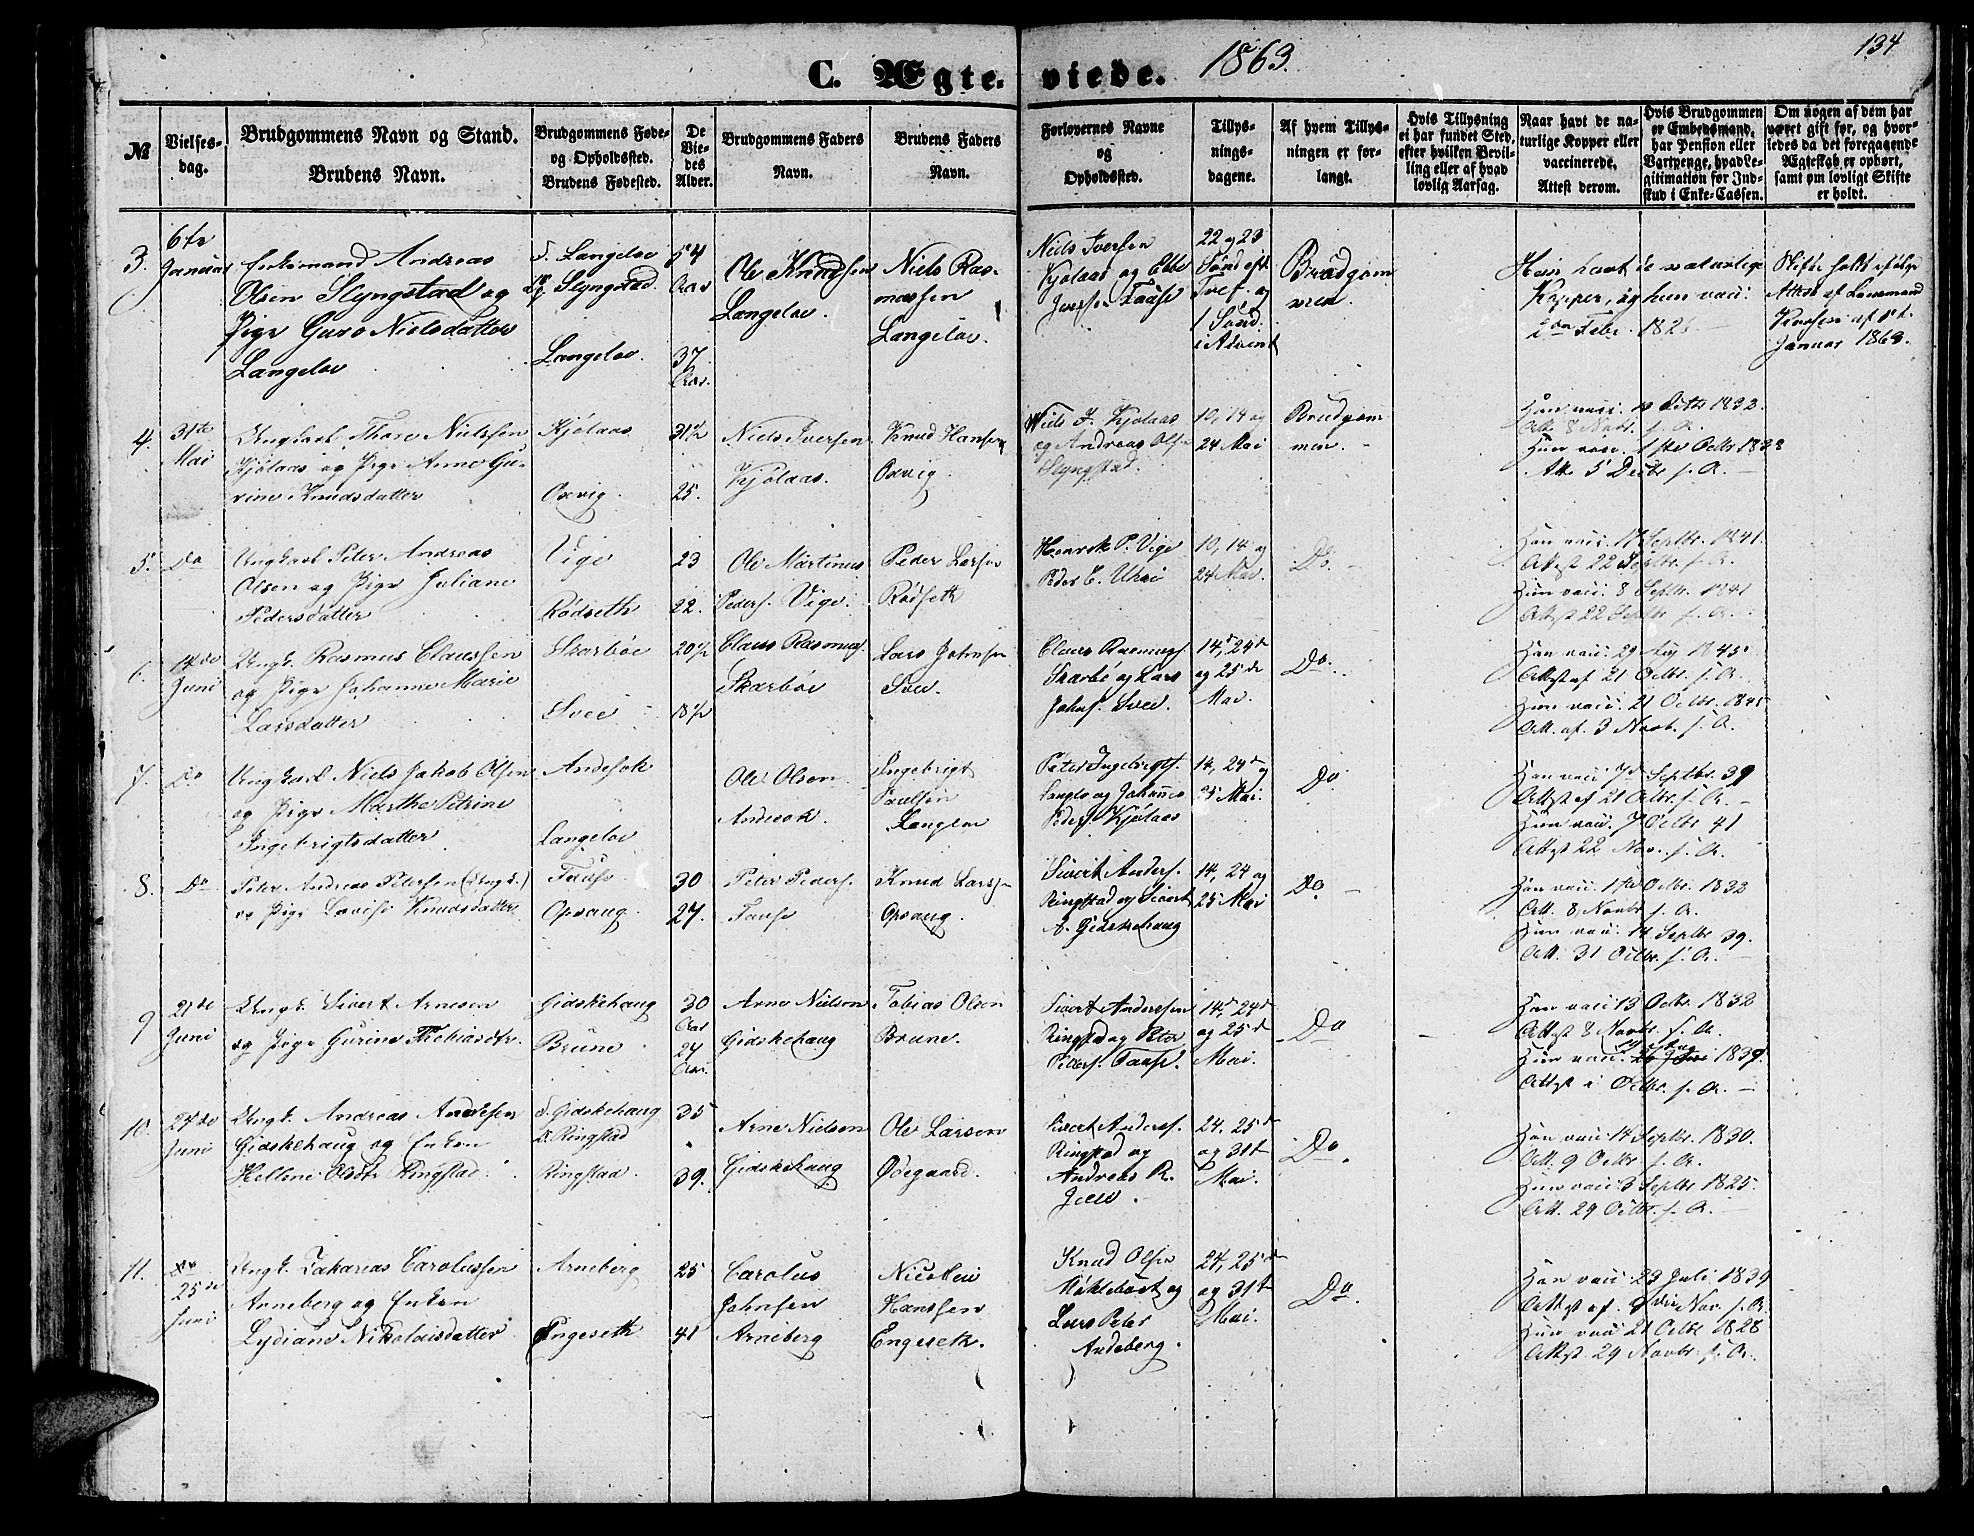 134
C. Ægteviede. 1863.
№
Vielsesdag.
Brudgommens Navn og Stand.
Brudens Navn.
Brudgommens Føde- og Opholdssted.
Brudens Fødested.
De Viedes Alder.
Brudgommens Faders Navn.
Brudens Faders Navn.
Forlovernes Navne og Opholdssted.
Tillysningsdagene.
Af hvem Tillysningen er forlangt.
Hvis Tillysning ei har fundet Sted, efter hvilken Bevilling eller af hvad lovlig Aarsag.
Naar havt de naturlige Kopper eller vaccinerede.
Attest derom.
Hvis Brudgommen er Embedsmand, har Pension eller Vartpenge, hvad Legitimation for Indskud i Enke-Cassen.
Om nogen af dem har været gift før, og hvorledes da det foregaaende Ægteskab er ophørt, samt om lovligt Skifte er holdt.
3.
6te Januar
Enkemand Andreas
Olsen Slyngstad og
Pige Guro Nielsdatter
Langeloe
f. Langeloe
Slyngstad
Langeloe.
54 Aar
37 Aar.
Ole Knudsen
Langeloe.
Niels Rasmussen
Langeloe.
Niels Iversen
Kjølaas og Ebbe
Jenssen Tause
22 og 23
Sønd. eft.
Tref. og
1 Sønd.
i Advent
Brudgommen.
Han havt de naturlige
Kopper, og hun vacc:
Febr. 182
Skifte holdt ifølge
Attest af Lensmand
af 1st.
Januar 1863.
4.
31te Mai
Ungkarl Thore Nielssen
Kjølaas og Pige Anne Gurine Knudsdatter
Kjølaas
Oxvig.
31½
25.
Niels Iversen
Kjølaas.
Knud Hansen
Oxvig.
Niels I. Kjølaas
og Andreas Olsen
Slyngstad.
10, 14 og
24 Mai
Brudgommen.
Han vacc. Octbr 1832.
Att. 8 Novbr. s. A.
Hun vacc. 1ste Octbr 1838
Att. 5 Decbr s. A.
5.
Do
Ungkarl Peter Andreas
Olsen og Pige Juliane
Pedersdatter
Vige
Rødseth
23
22.
Ole Martinus
Peders. Vige.
Peder Larsen
Rødseth
Henrik P. Vige
Peder E. Uhri
10, 14 og
24 Mai.
Do.
Han vacc. 17 Septbr. 1841.
Attest 22 Septbr. s. A.
Hun vacc. 8 Septbr. 1841
Attest 22 Septbr s. A.
6.
14de Juni
Ungk. Rasmus Claussen
og Pige Johanne Marie
Larsdatter
Skarbøe
Svee
20½
18½
Claus Rasmus.
Skarbøe
Lars Johnsen
Svee.
Claus Rasmus.
Skarbø og Lars
Johns. Svee.
14, 24de
og 25de
Mai.
Do.
Han vacc. 29 Aug 1845.
Attest af 21 Octbr. s. A.
Hun vacc. 21 Octbr. 1845
Att. af. 3 Novb. s. A.
7.
Do
Ungkarl Niels Jakob Olsen
og Pige Marthe Petrine
Ingebrigtsdatter
Andesok
Langeloe
Ole Olsen
Andesok.
Ingebrigt
Paulsen
Langeloe
Peter Ingebrigts.
Langlo og Johannes
Peders. Kjølaas
14, 24de og
25 Mai.
Do
Han vacc. 7de Septbr. 39
Attest af 21 Octbr. s. A.
Hun vacc. 7 Octbr 41
Attest 22 Nov. s. A.
8.
Do
Peter Andreas Petersen (Ungk.)
og Pige Lovise Knudsdatter
Tause
Opsaug.
30
27.
Peter Peders.
Tause
Knud Larsen
Opsaug.
Sivert Anders.
Ringstad og Sivert
A. Gidskehaug
14, 24 og
25 Mai
Do
Han vacc. 1ste Octbr 1832
Att. 8 Novbr s. A.
Hun vacc. 14 Septbr 39.
Att. 31 Octbr. s. A.
9
21de Juni
Ungk. Sivert Arnesen
og Pige Gurine Thobiasdtr.
Gidskehaug
Brune
30 Aar
27 Aar.
Arne Nielsen
Gidskehaug
Tobias Olsen
Brune.
Sivert Anderssen
Ringstad og Peter
Peders. Tause.
14, 24de
og 25de
Mai.
Do
Han vacc 13 Octbr. 1832
Attest 8 Novbr. s. A.
Hun vacc. 1837.
Attest i Octbr. s. A.
10.
24de Juni
Ungk. Andreas Andersen
Gidskehaug og Enken
Hellene Olsdtr Ringstad.
f. Gidskehaug
Ringstad
Ringstad.
35
39.
Arne Nielsen
Gidskehaug
Ole Larsen
Ødegaard.
Sivert Anders.
Ringstad og
Andreas R.
24, 25de
og 31te
Mai.
Do.
Han vacc 14 Septbr. 1830.
Att. 9 Octbr. s. A.
Hun vacc 3 Septbr 1825.
Att. 29 Octbr. s. A.
11.
25de Juni
Ungk. Zakarias Carolussen
Anneberg og Enken
Lydiane Nikolaisdatter
Arneberg
Engeseth
25
41
Carolus
Johnsen
Arneberg
Nicolai
Hanssen
Engeseth.
Knud Olsen
Møklebust og
Lars Peter
Andeberg.
24, 25de
og 31te
Mai.
Do.
Han vacc 23 Juli 1839
Attest af Nov. s. A.
Hun vacc 21 Octbr 1828
Attest. 29 Novbr. s. A.